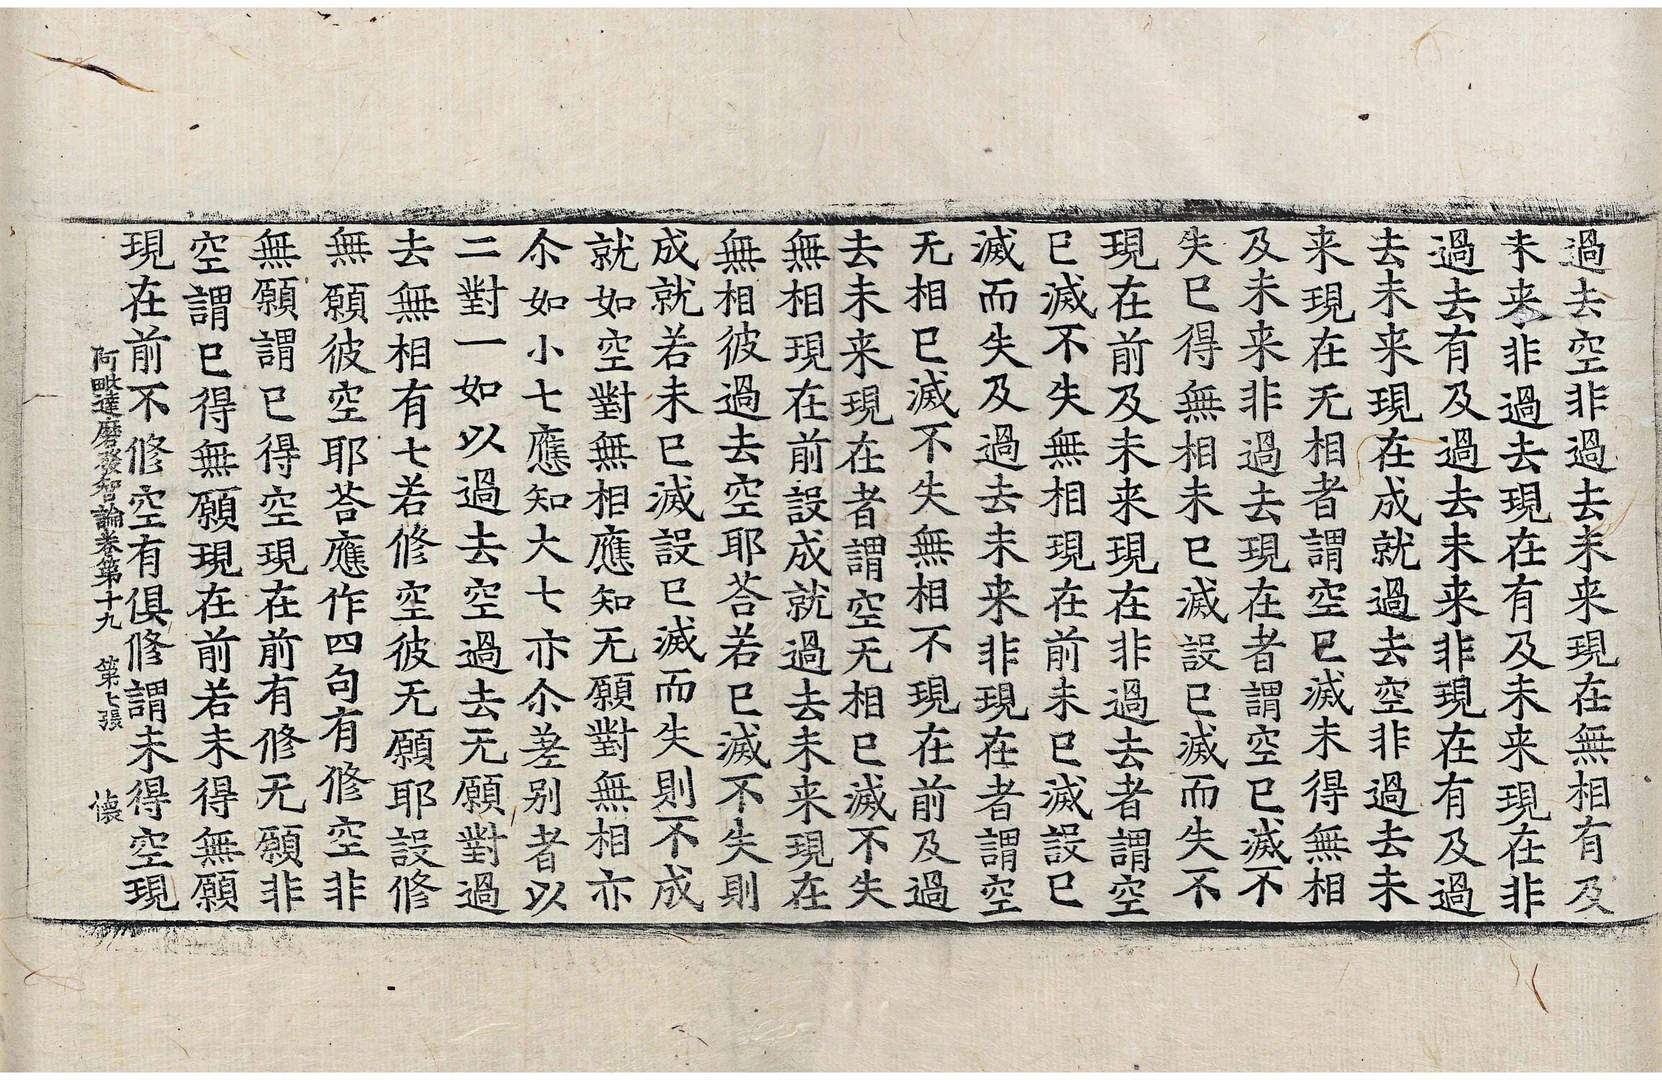 過去空非過去未来現在無相有及
未来非過去現在有及未来現在非
過去有及過去未来非現在有及過
去未来現在成就過去空非過去未
来現在无相者謂空已滅未得無相
及未来非過去現在者謂空已滅不
失已得無相未已滅設已滅而失不
現在前及未来現在非過去者謂空
已滅不失無相現在前未已滅設已
滅而失及過去未来非現在者謂空
无相已滅不失無相不現在前及過
去未来現在者謂空无相已滅不失
無相現在前設成就過去未来現在
無相彼過去空耶荅若已滅不失則
成就若未已滅設已滅而失則不成
就如空對無相應知无願對無相亦
尒如小七應知大七亦尒差別者以
二對一如以過去空過去无願對過
去無相有七若修空彼无願耶設修
無願彼空耶荅應作四句有修空非
無願謂已得空現在前有修无願非
空謂已得無願現在前若未得無願
現在前不修空有俱修謂未得空現
阿毗達磨發智論卷第十九 第七張 懷